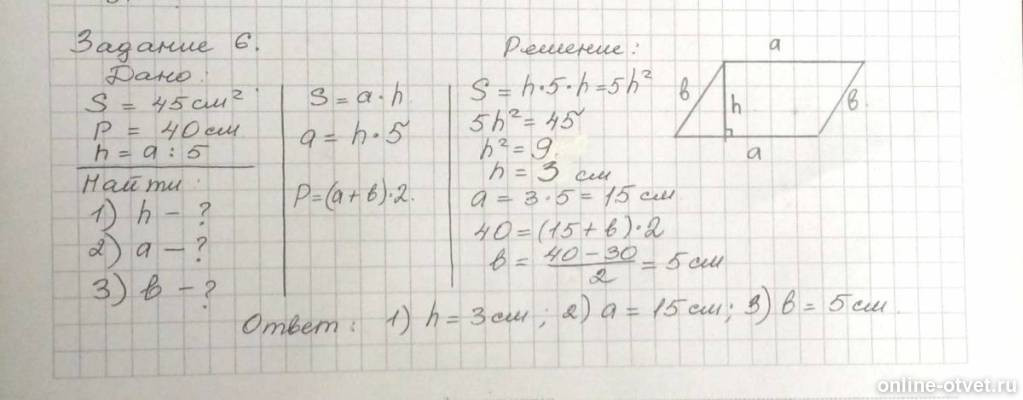 Задание 6.
Дано:
S = 45 см²
P = 40 см
h = a : 5
Найти:
1) h – ?
2) a – ?
3) в – ?
S = a · h
a = h · 5
P = (a + в) · 2.
Решение:
S = h · 5 · h = 5h²
5h² = 45
h² = 9
h = 3 см
a = 3 · 5 = 15 см
40 = (15 + в) · 2
в = (40 – 30)/2 = 5 см
a
в
h
в
a
Ответ: 1) h = 3 см; 2) a = 15 см; 3) в = 5 см.
online-otvet.ru